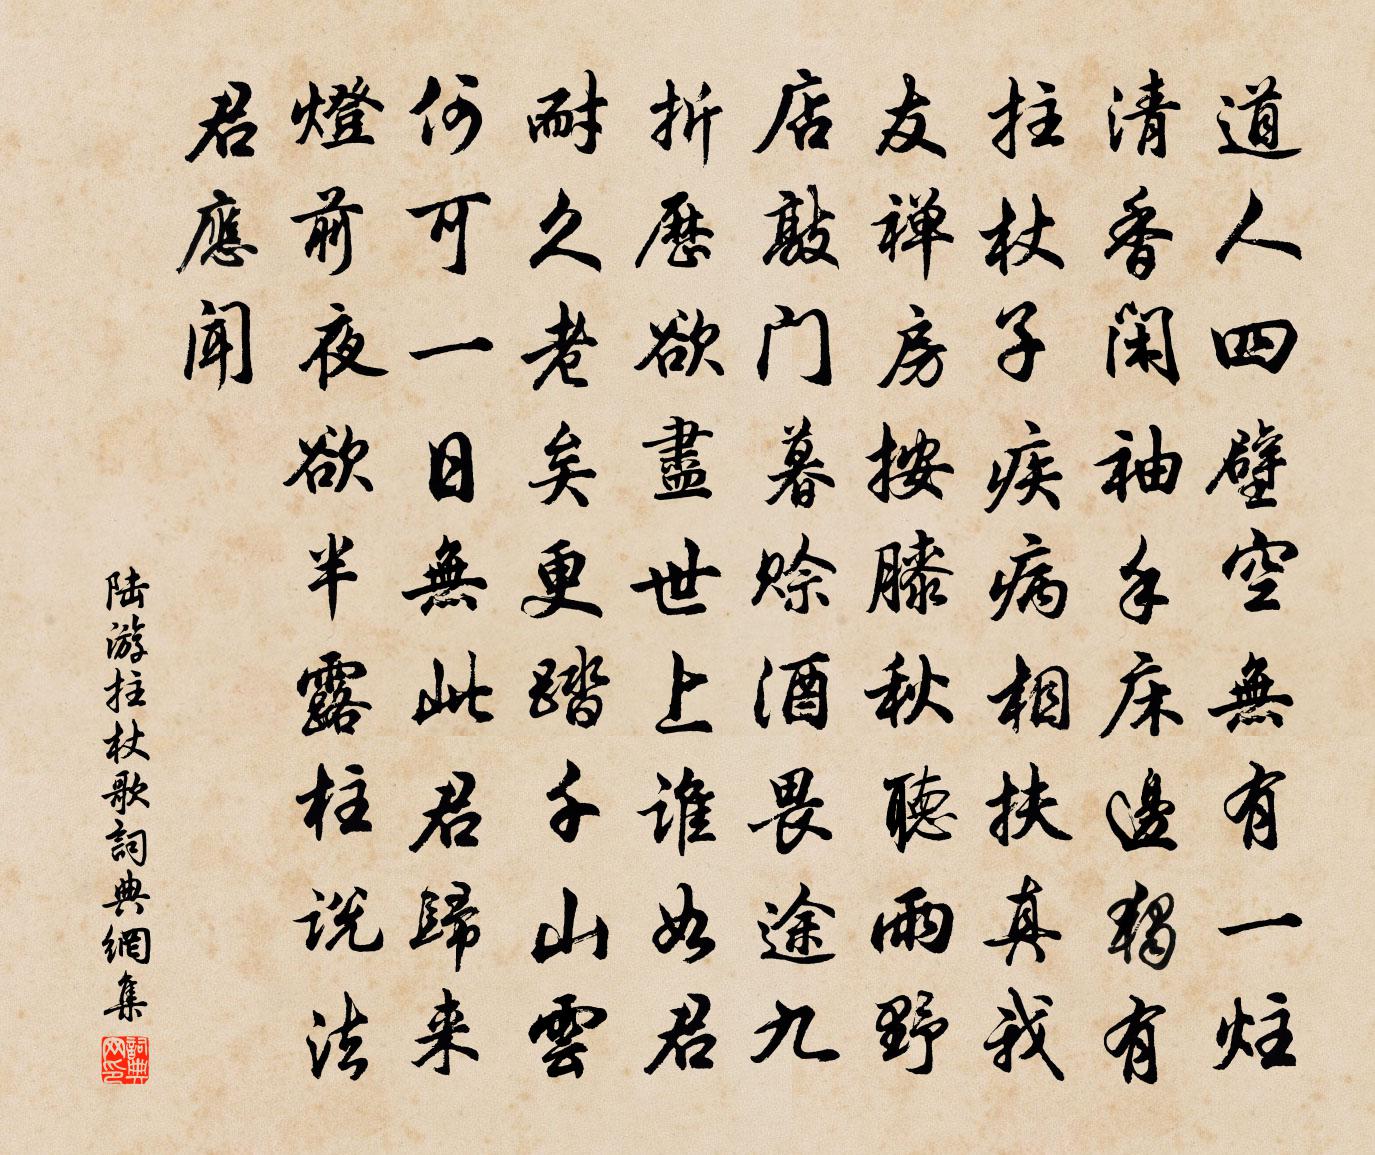 道人四壁空無有一炷
清香閑袖手床邊獨有
拄杖子疾病相扶真我
友禅房按膝秋聽雨野
店敲门暮賒酒畏途九
折歷欲盡世上誰如君
耐久老矣更踏千山雲
何可一日無此君歸来
燈前夜欲半露柱説法
君應聞
陆游拄杖歌詞典網集
詞典
网印